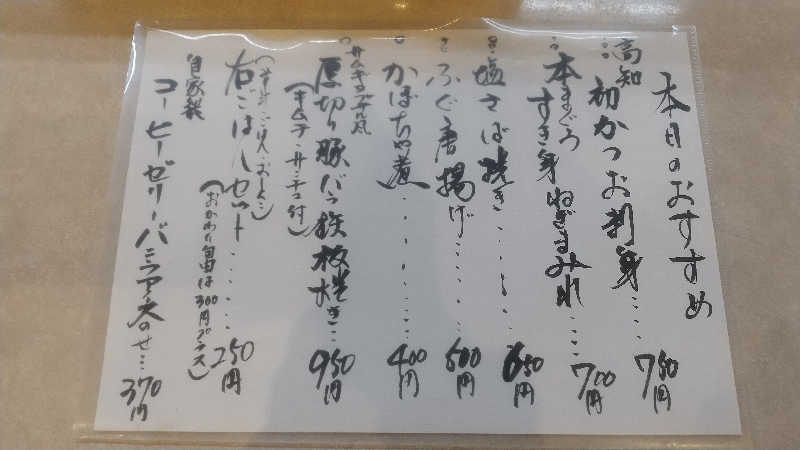 本日のおすすめ
高知 初かつお刺身....750円
本まぐろすき身ねぎまみれ....700円
塩さば焼き.......650円
ふぐ唐揚げ.......500円
かぼちゃ煮..........400円
サムギョプサル風
厚切り豚バラ鉄板焼き...950円
(キムチ・サンチュ付)
右ごはんセット......250円
(おかわり自由は300円プラス)
自家製
コーヒーゼリーバニラアイスのせ...370円